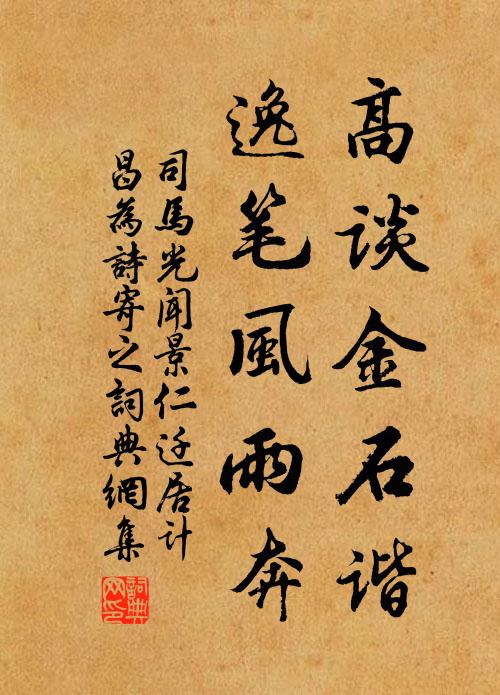 高谈金石谐
逸笔風雨奔
司馬光闻景仁迁居许
昌為詩寄之詞典網集
詞典网印